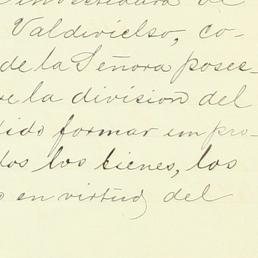 de
Valdivielso, co-
de la Señora poses-
la division del
formar un pro-
los bienes, los
en virtud del